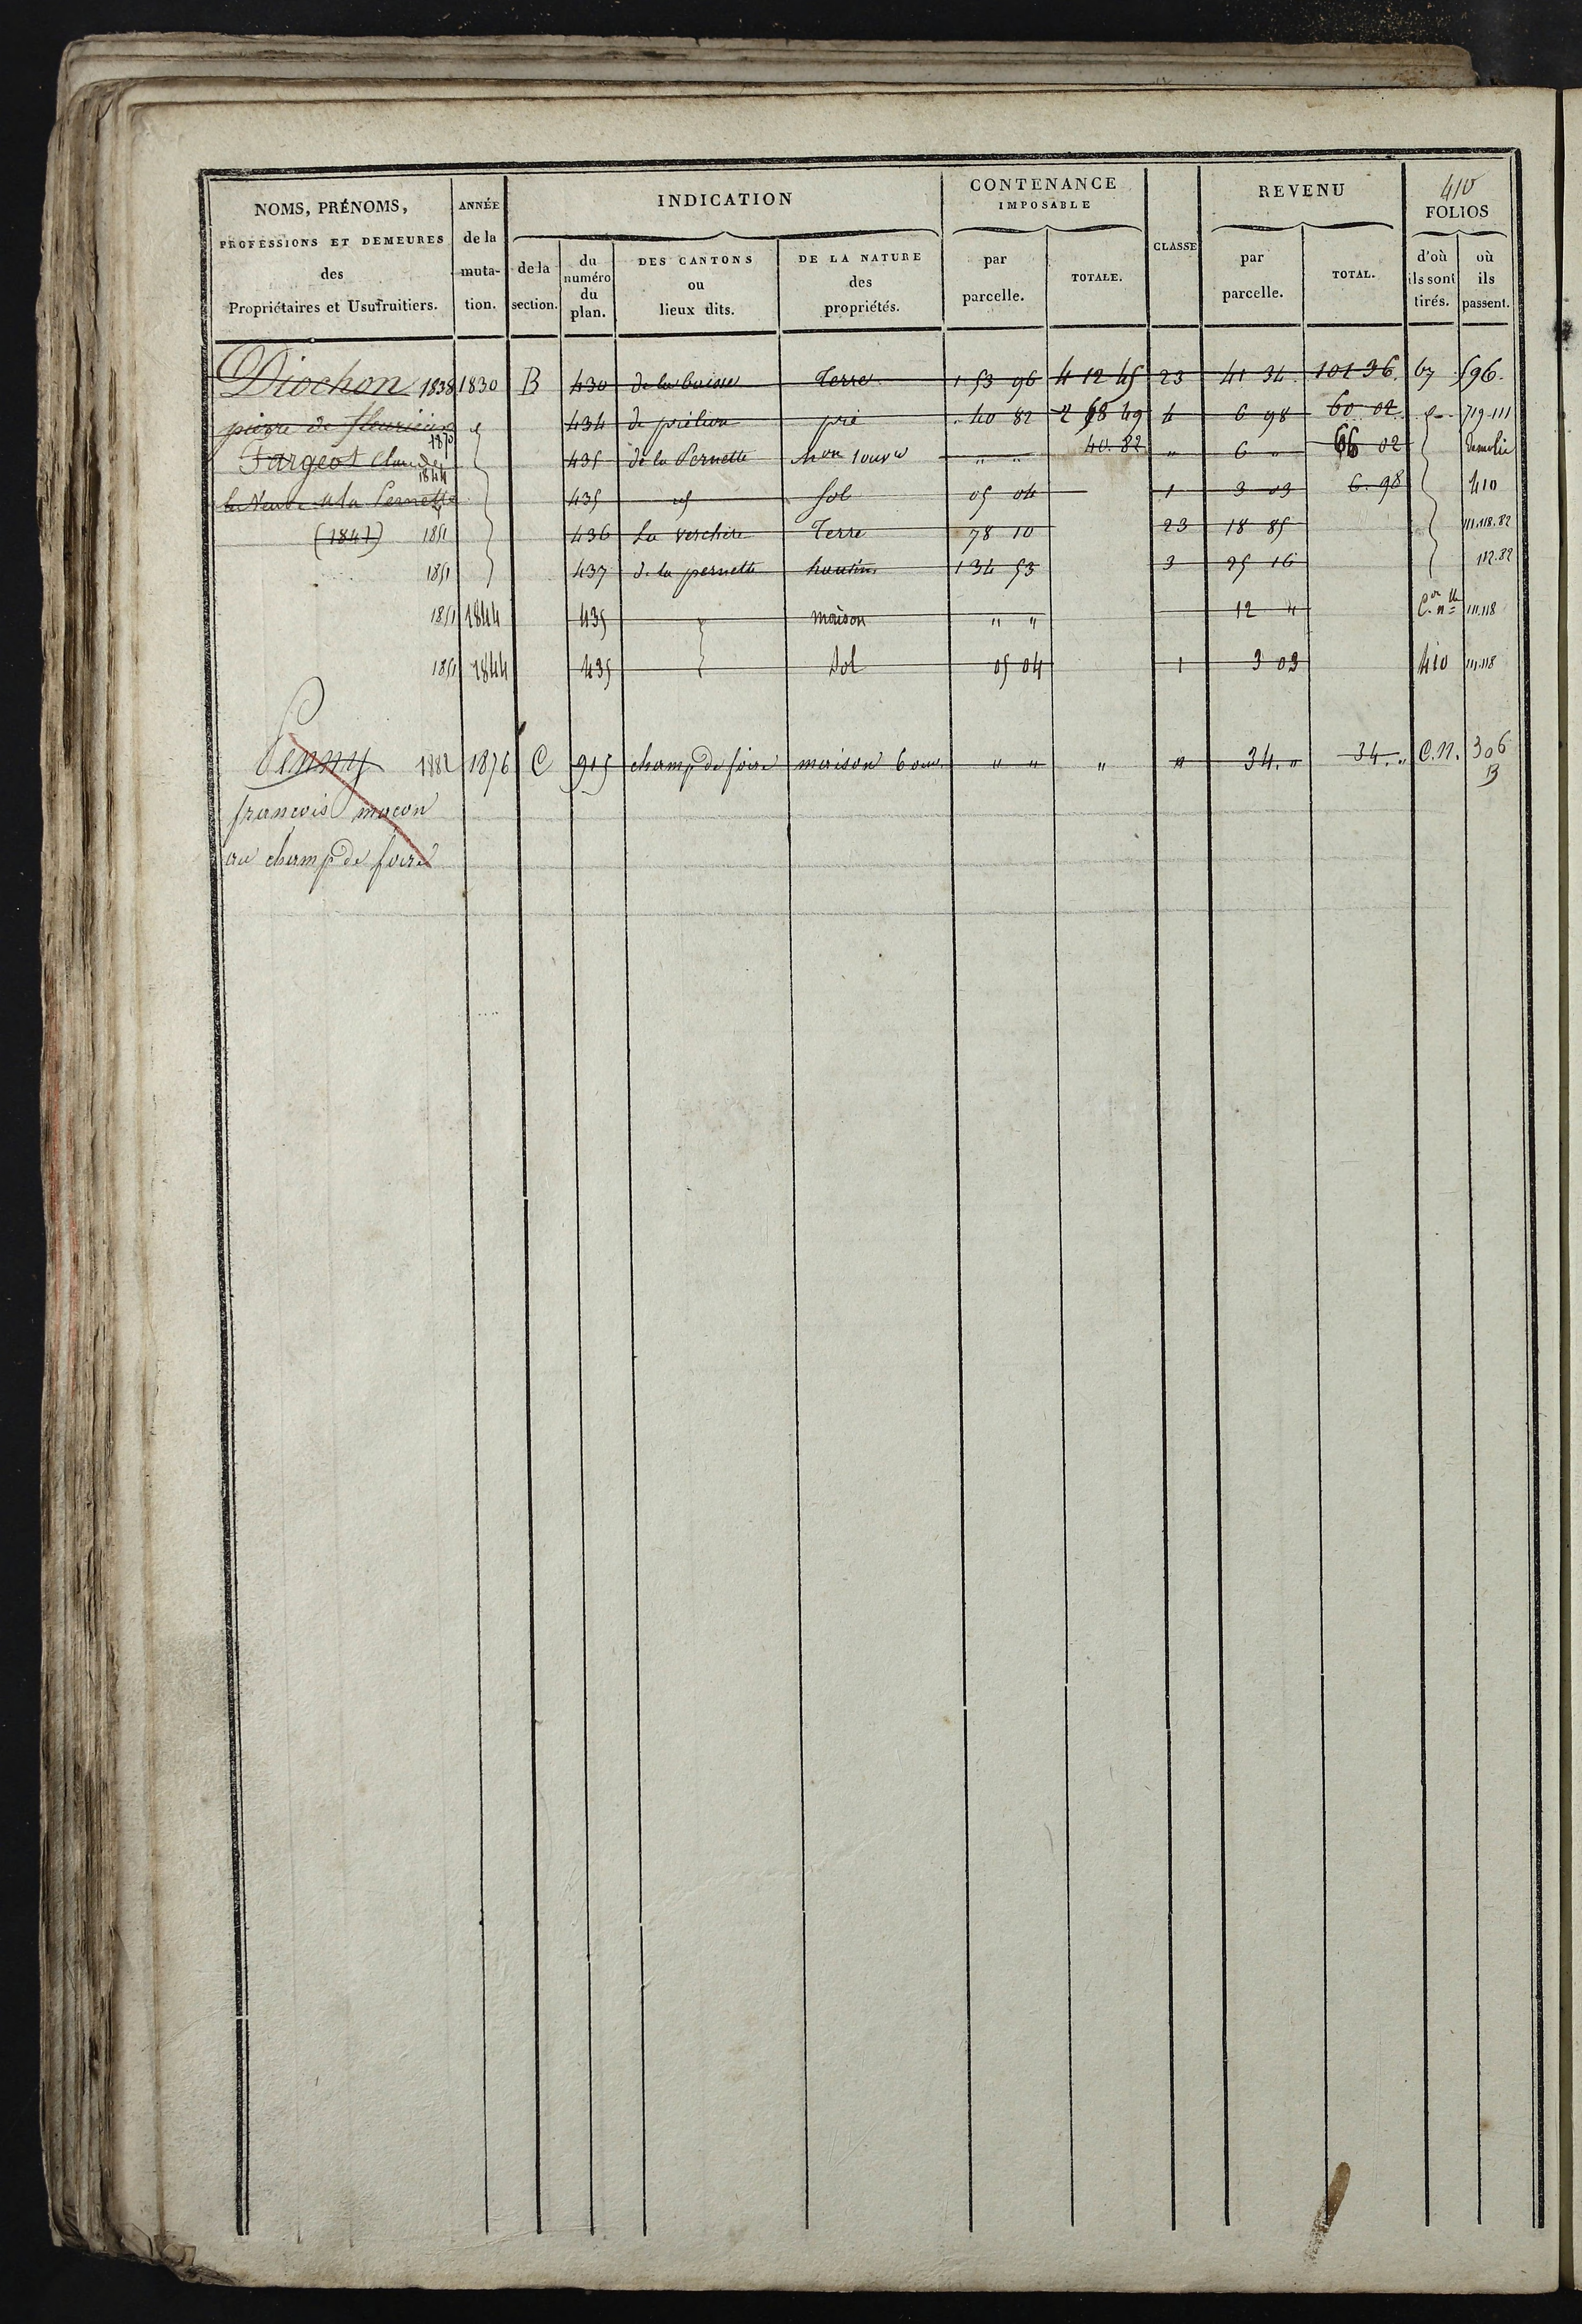 410
NOMS, PRÉNOMS, PROFESSIONS ET DEMEURES des Propriétaires et Usufruitiers.
ANNÉE de la muta-tion.
INDICATION
de la section.
du numéro du plan.
DES CANTONS ou lieux dits.
DE LA NATURE des propriétés.
CONTENANCE IMPOSABLE
par parcelle.
TOTALE.
CLASSE
REVENU
par parcelle.
TOTAL.
FOLIOS
d'où ils sont tirés.
où ils passent.
Diochon 1838 1830 B 430 de la buisse Terre 1 53 96 4 12 45 23 41 34 101 36 67 596
pierre de fleurieux 434 de prélion pré 40 82 2 68 49 4 6 98 60 02 719-111
1870
Fargeot Claude 435 de la Pernette Mon 1 ouvre " " 40.82 " 6 " 66 02 demolie
1844
la Veuve a la Pernette 435 id sol 05 04 1 3 03 6.98 410
(1847) 1851 436 La verchère Terre 78 10 23 18 85 111.118.82
1851 437 de la pernette hautin 1 34 53 3 25 16 112.82
1851 1844 435 maison " " 12 " C.on n.lle 111.118
1851 1844 435 Sol 05 04 1 3 03 410 111.118
Penny 1882 1876 C 915 champ de foire maison 6 ouv. " " " " 34. " 34. " C.N. 306
B
françois maçon
au champ de foire